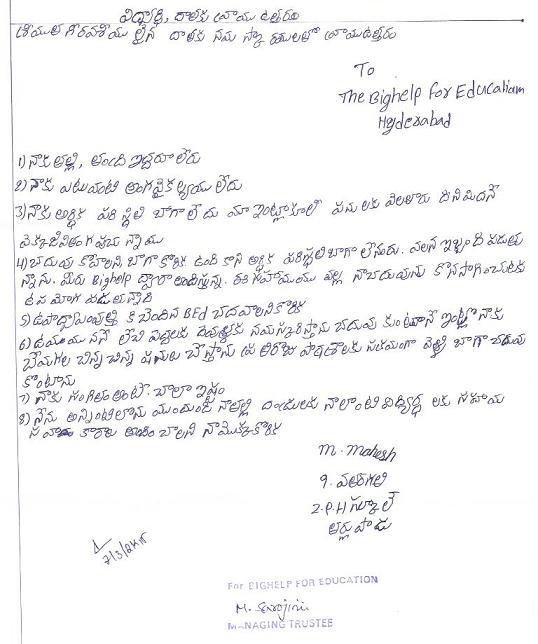 విద్యార్థి, దాతకు వ్రాయు ఉత్తరము
శ్రీయుత గౌరవనీయు లైన దాతకు నమ స్కారములతో వ్రాయుఉత్తరము
To
The Bighelp for Education
Hyderabad
1) నాకు తల్లి, తండ్రి ఇద్దరూ లేరు
2) నాకు ఎటువంటి అంగవైకల్యము లేదు
3) నాకు ఆర్థిక పరిస్థితి బాగా లేదు మా ఇంట్లో పనులకు వెలతారు దినిమిదనే
4) చదువు కోవాలని, బాగా కోరిక ఉంది కాని ఆర్థిక పరిస్థితి బాగా లేనందు. వలన ఇబ్బంది పడుతు
న్నాను. మీరు Bighelp ద్వారా అందిస్తున్న. ఈ సహాయము వల్ల నా చదువును కొనసాగించుటకు
ఉప యోగ పడుతున్నది
5) ఉపాధ్యాయ వృత్తి కి చెందిన BEd చదవాలని కోరిక
6) ఉదయమునే లేచి పెద్దలకు దేవుళ్లకు నమస్కరిస్తాను చదువు కుంటూనే ఇంట్లో నాకు
చేయగల చిన్న చిన్న పనులు చేస్తాను ప్రతిరోజు పాఠశాలకు సక్రమంగా వెళ్లి బాగా చదువు
కొంటాను
7) నాకు సంగీతం అంటే. చాలా ఇష్టం
8) నేను అన్నింటిలోను ముందుండి నా తల్లి దండ్రులకు నాలాంటి విద్యార్థు లకు సహాయ
సహకారాలు అందించాలని నా యొక్క కోరిక
M. Mahesh
9. వ తరగతి
Z.P.H స్కూల్
తర్లుపాడు
7/3/2K15
For BIGHELP FOR EDUCATION
M. Sarojini
MANAGING TRUSTEE